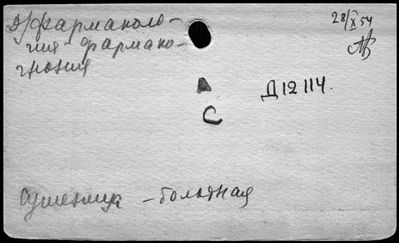 Д/фармаколо-
гия-фармако-
гнозия
28/X 54
А
С
Д 12 114.
Сушеница - болотная